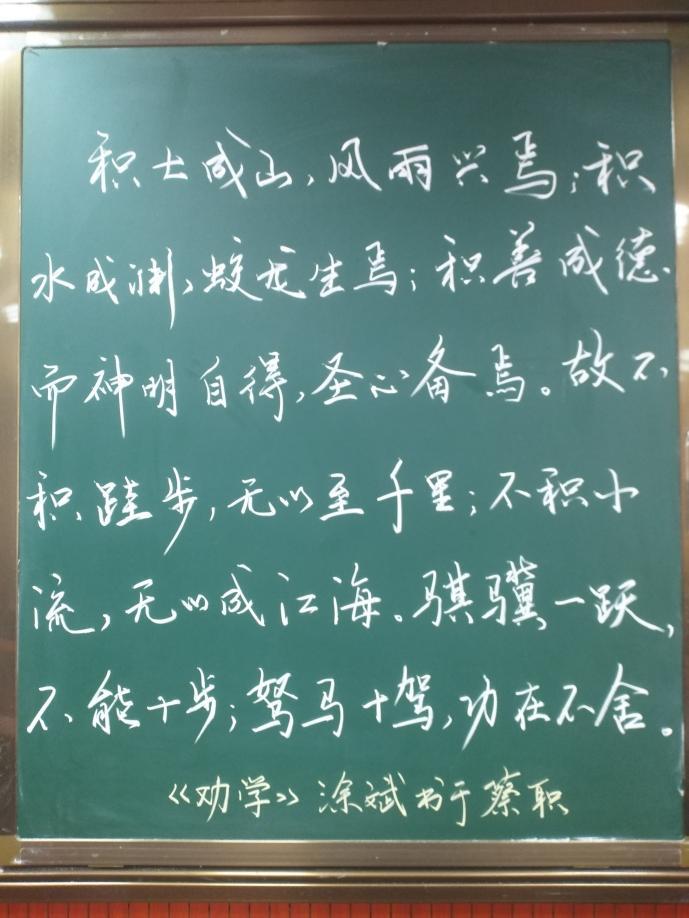 积土成山,风雨兴焉;积
水成渊,蛟龙生焉;积善成德,
而神明自得,圣心备焉。故不
积跬步,无以至千里;不积小
流,无以成江海。骐骥一跃,
不能十步;驽马十驾,功在不舍。
《劝学》涂斌书于蔡职